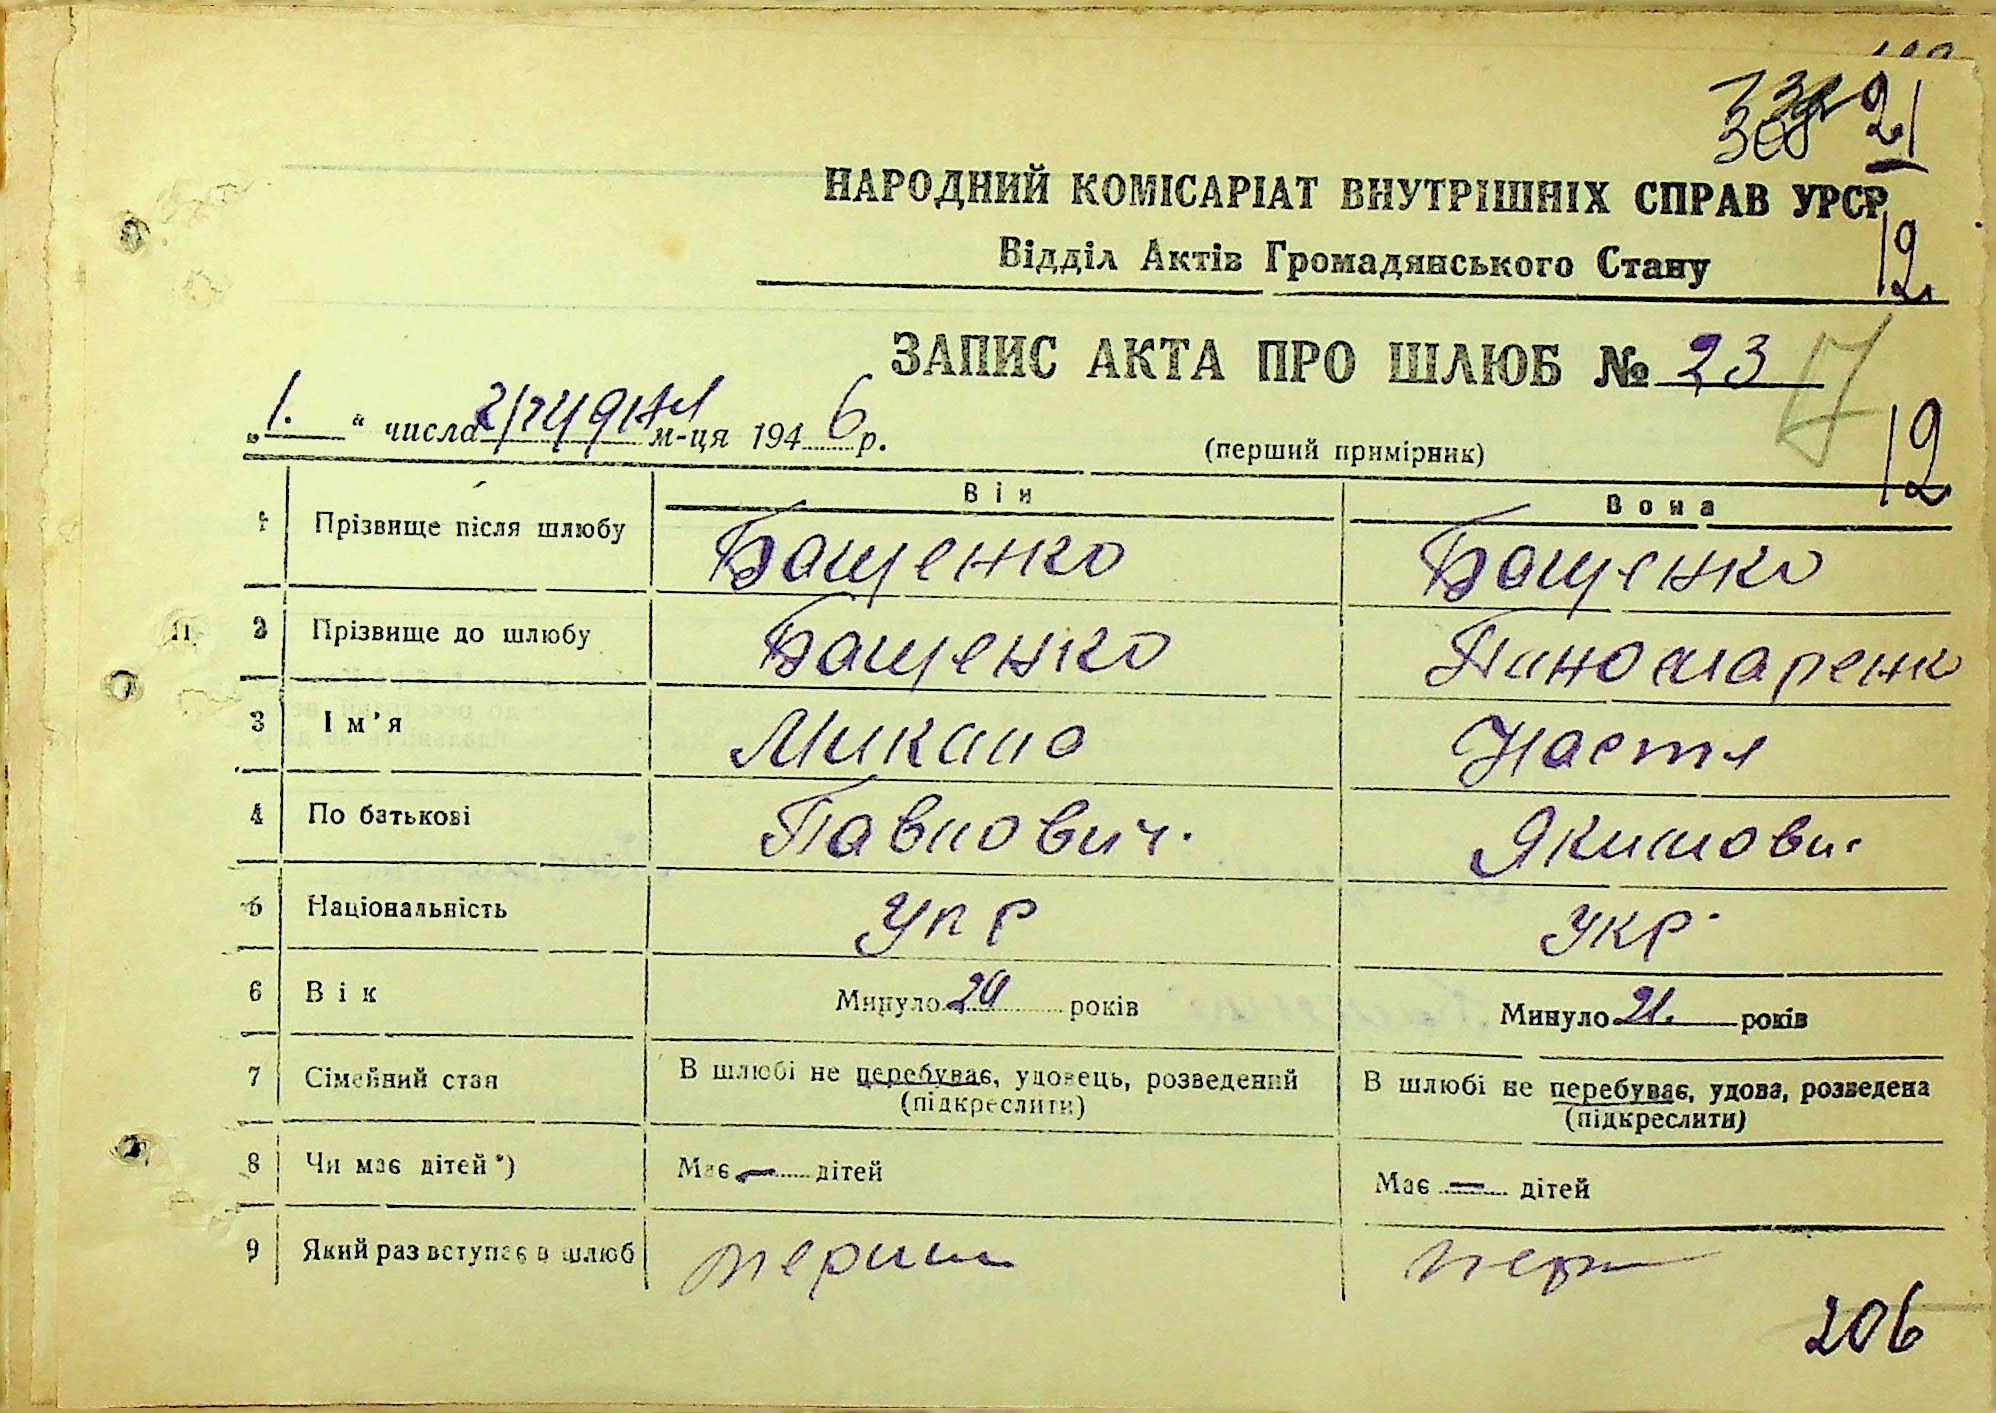 21
НАРОДНИЙ КОМІСАРІАТ ВНУТРІШНІХ СПРАВ УРСР
12
Відділ Актів Громадянського Стану
ЗАПИС АКТА ПРО ШЛЮБ № 23
„1.“ числа м-ця 1946 р.
(перший примірник)
12
Він Вона
1 Прізвище після шлюбу Бащенко Бащенко
2 Прізвище до шлюбу Бащенко Пиномаренк
3 Ім'я Микола Настя
4 По батькові Павлович. Якимович
5 Національність Укр Укр.
6 Вік Минуло 20 років Минуло 21. років
7 Сімейний стан В шлюбі не перебуває, удовець, розведений В шлюбі не перебуває, удова, розведена
(підкреслити) (підкреслити)
8 Чи має дітей*) Має – дітей Має – дітей
9 Який раз вступає в шлюб перший перш
206